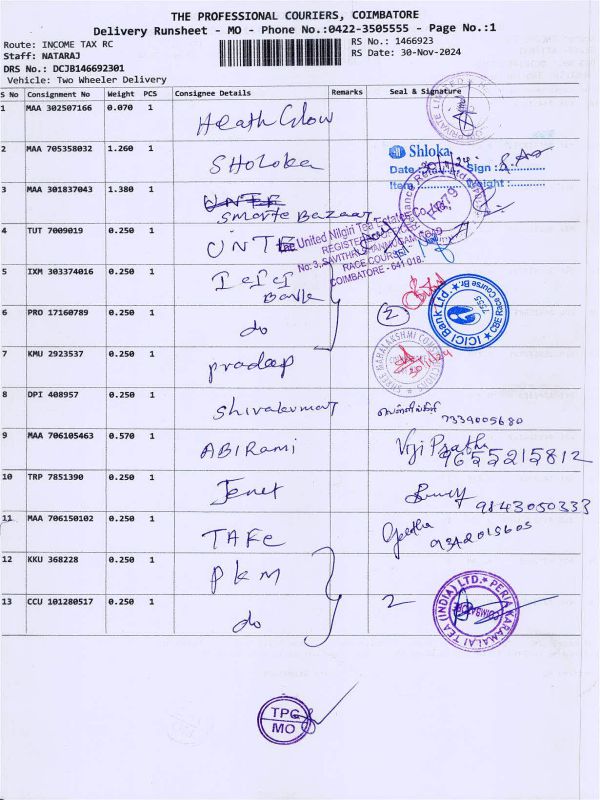 THE PROFESSIONAL COURIERS, COIMBATORE
Delivery Runsheet - MO - Phone No.:0422-3505555 - Page No.:1
Route: INCOME TAX RC
RS No.: 1466923
Staff: NATARAJ
RS Date: 30-Nov-2024
DRS No.: DCJB146692301
Vehicle: Two Wheeler Delivery
S No Consignment No Weight PCS Consignee Details Remarks Seal & Signature
1 MAA 302507166 0.070 1 Heath Glow
2 MAA 705358032 1.260 1 SHOloka
Shloka
Date: 30/11/24 Sign:
Item: Weight:
3 MAA 301837043 1.380 1 Smarte Bazaar
4 TUT 7009019 0.250 1 UNTE
The United Nilgiri Tea Estates Co. Ltd.
REGISTERED OFFICE
No: 3, SAVITHRI SHANMUGAM ROAD
RACE COURSE
COIMBATORE - 641 018.
5 IXM 303374016 0.250 1 ICICI
Bank
ICICI Bank Ltd. CBE Race Course Br.
6 PRO 17160789 0.250 1 do 2
7 KMU 2923537 0.250 1 pradeep
8 DPI 408957 0.250 1 Shivakumar
7339005680
9 MAA 706105463 0.570 1 ABIRami Viji Pratha
9655215812
10 TRP 7851390 0.250 1 Jenet
9843050333
11 MAA 706150102 0.250 1 TAFe Geetha
12 KKU 368228 0.250 1 PKM
13 CCU 101280517 0.250 1 do 2
PERIA KARAMALAI TEA (INDIA) LTD.
TPC
MO